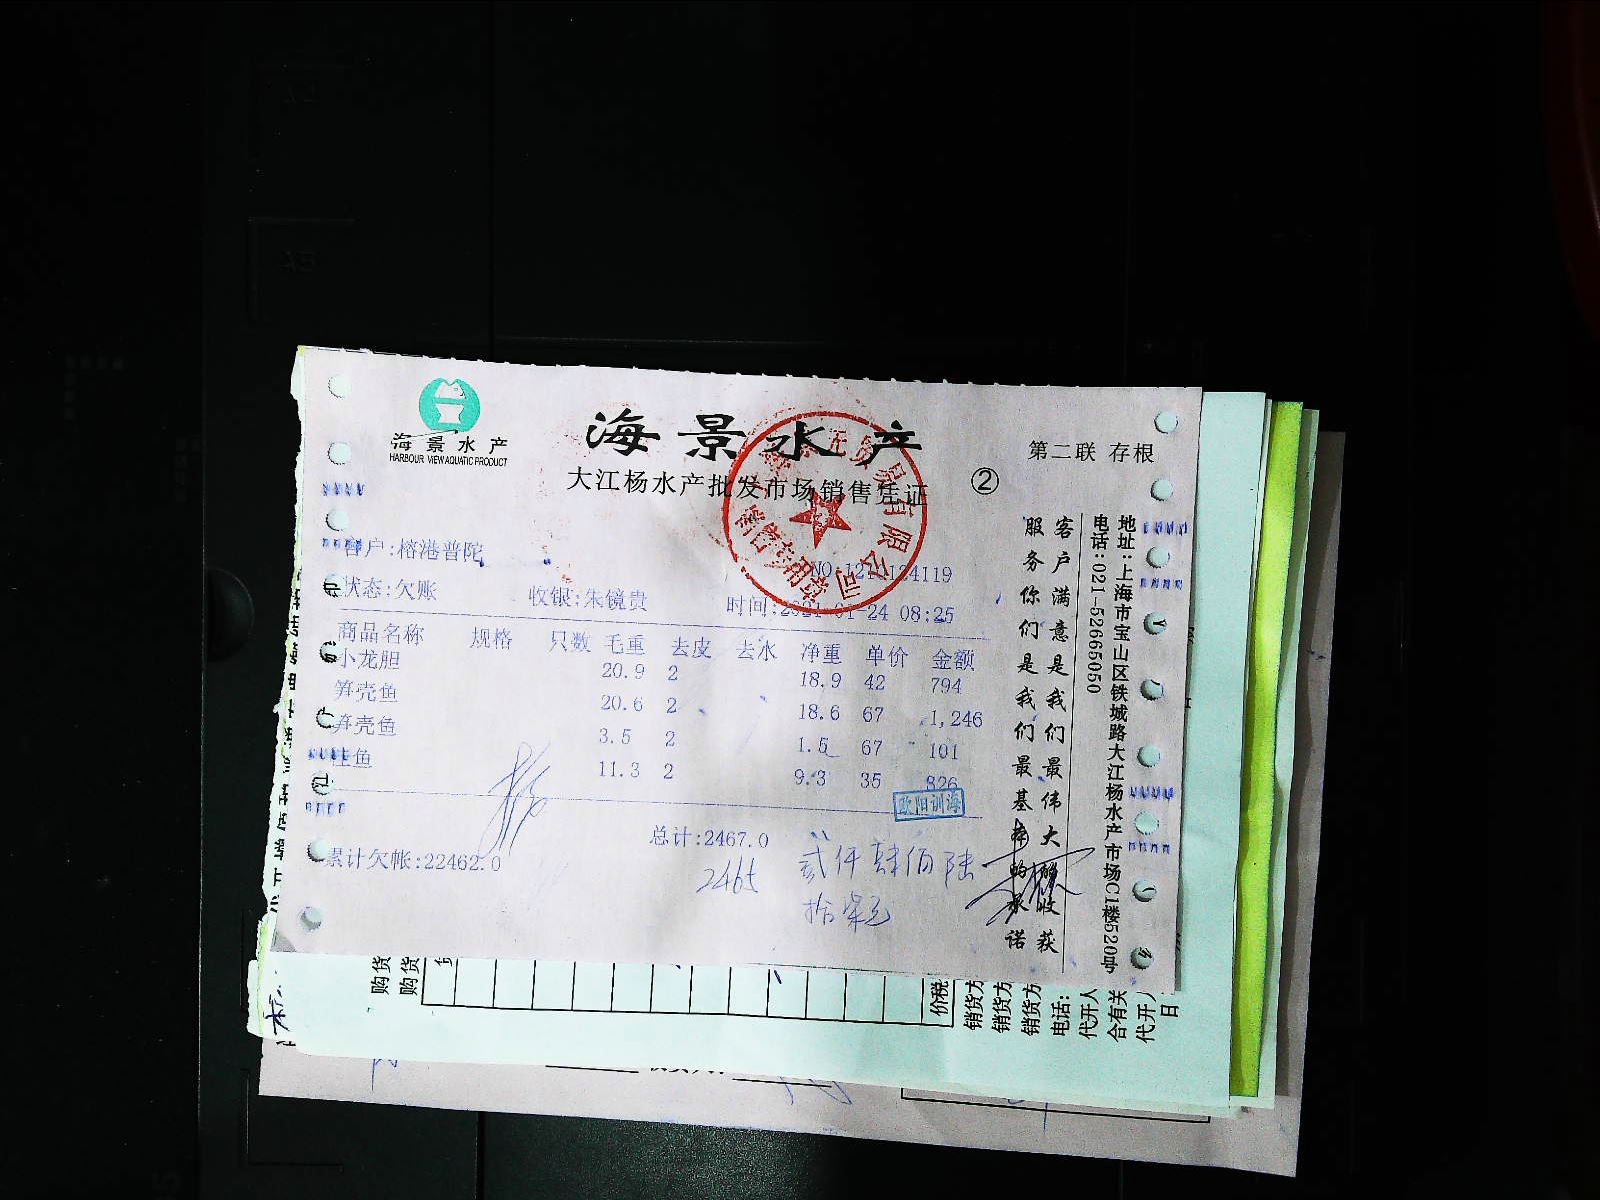 海景水产
HARBOUR VIEW AQUATIC PRODUCT
海景水产
大江杨水产批发市场销售凭证
②
第二联 存根
客户:榕港普陀
状态:欠账 收银:朱镜贵 时间:2021-01-24 08:25
商品名称 规格 只数 毛重 去皮 去水 净重 单价 金额
小龙胆 20.9 2 18.9 42 794
笋壳鱼 20.6 2 18.6 67 1,246
笋壳鱼 3.5 2 1.5 67 101
鱼 11.3 2 9.3 35 326
欧阳训海
总计:2467.0
累计欠帐:22462.0
2465
贰仟肆佰陆
拾柒元
客户满意是我们最伟大的收获
服务你们是我们最基本的承诺
地址:上海市宝山区铁城路大江杨水产市场C1楼520号
电话:021-52665050
有限公司
购货
购货
价税
销货方
销货方
销货方
电话:
代开人
合有关
代开人
日